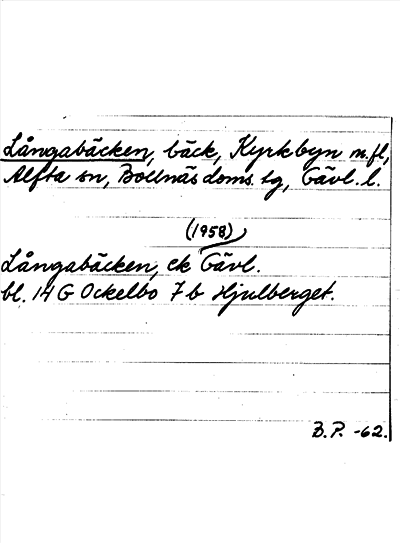 Långabäcken, bäck, Kyrkbyn m.fl,
Alfta sn, Bollnäs doms. tg, Gävl. l.
(1958)
Långabäcken, ek Gävl.
bl. 14 G Ockelbo 7 b Hjulberget.
B.P. -62.